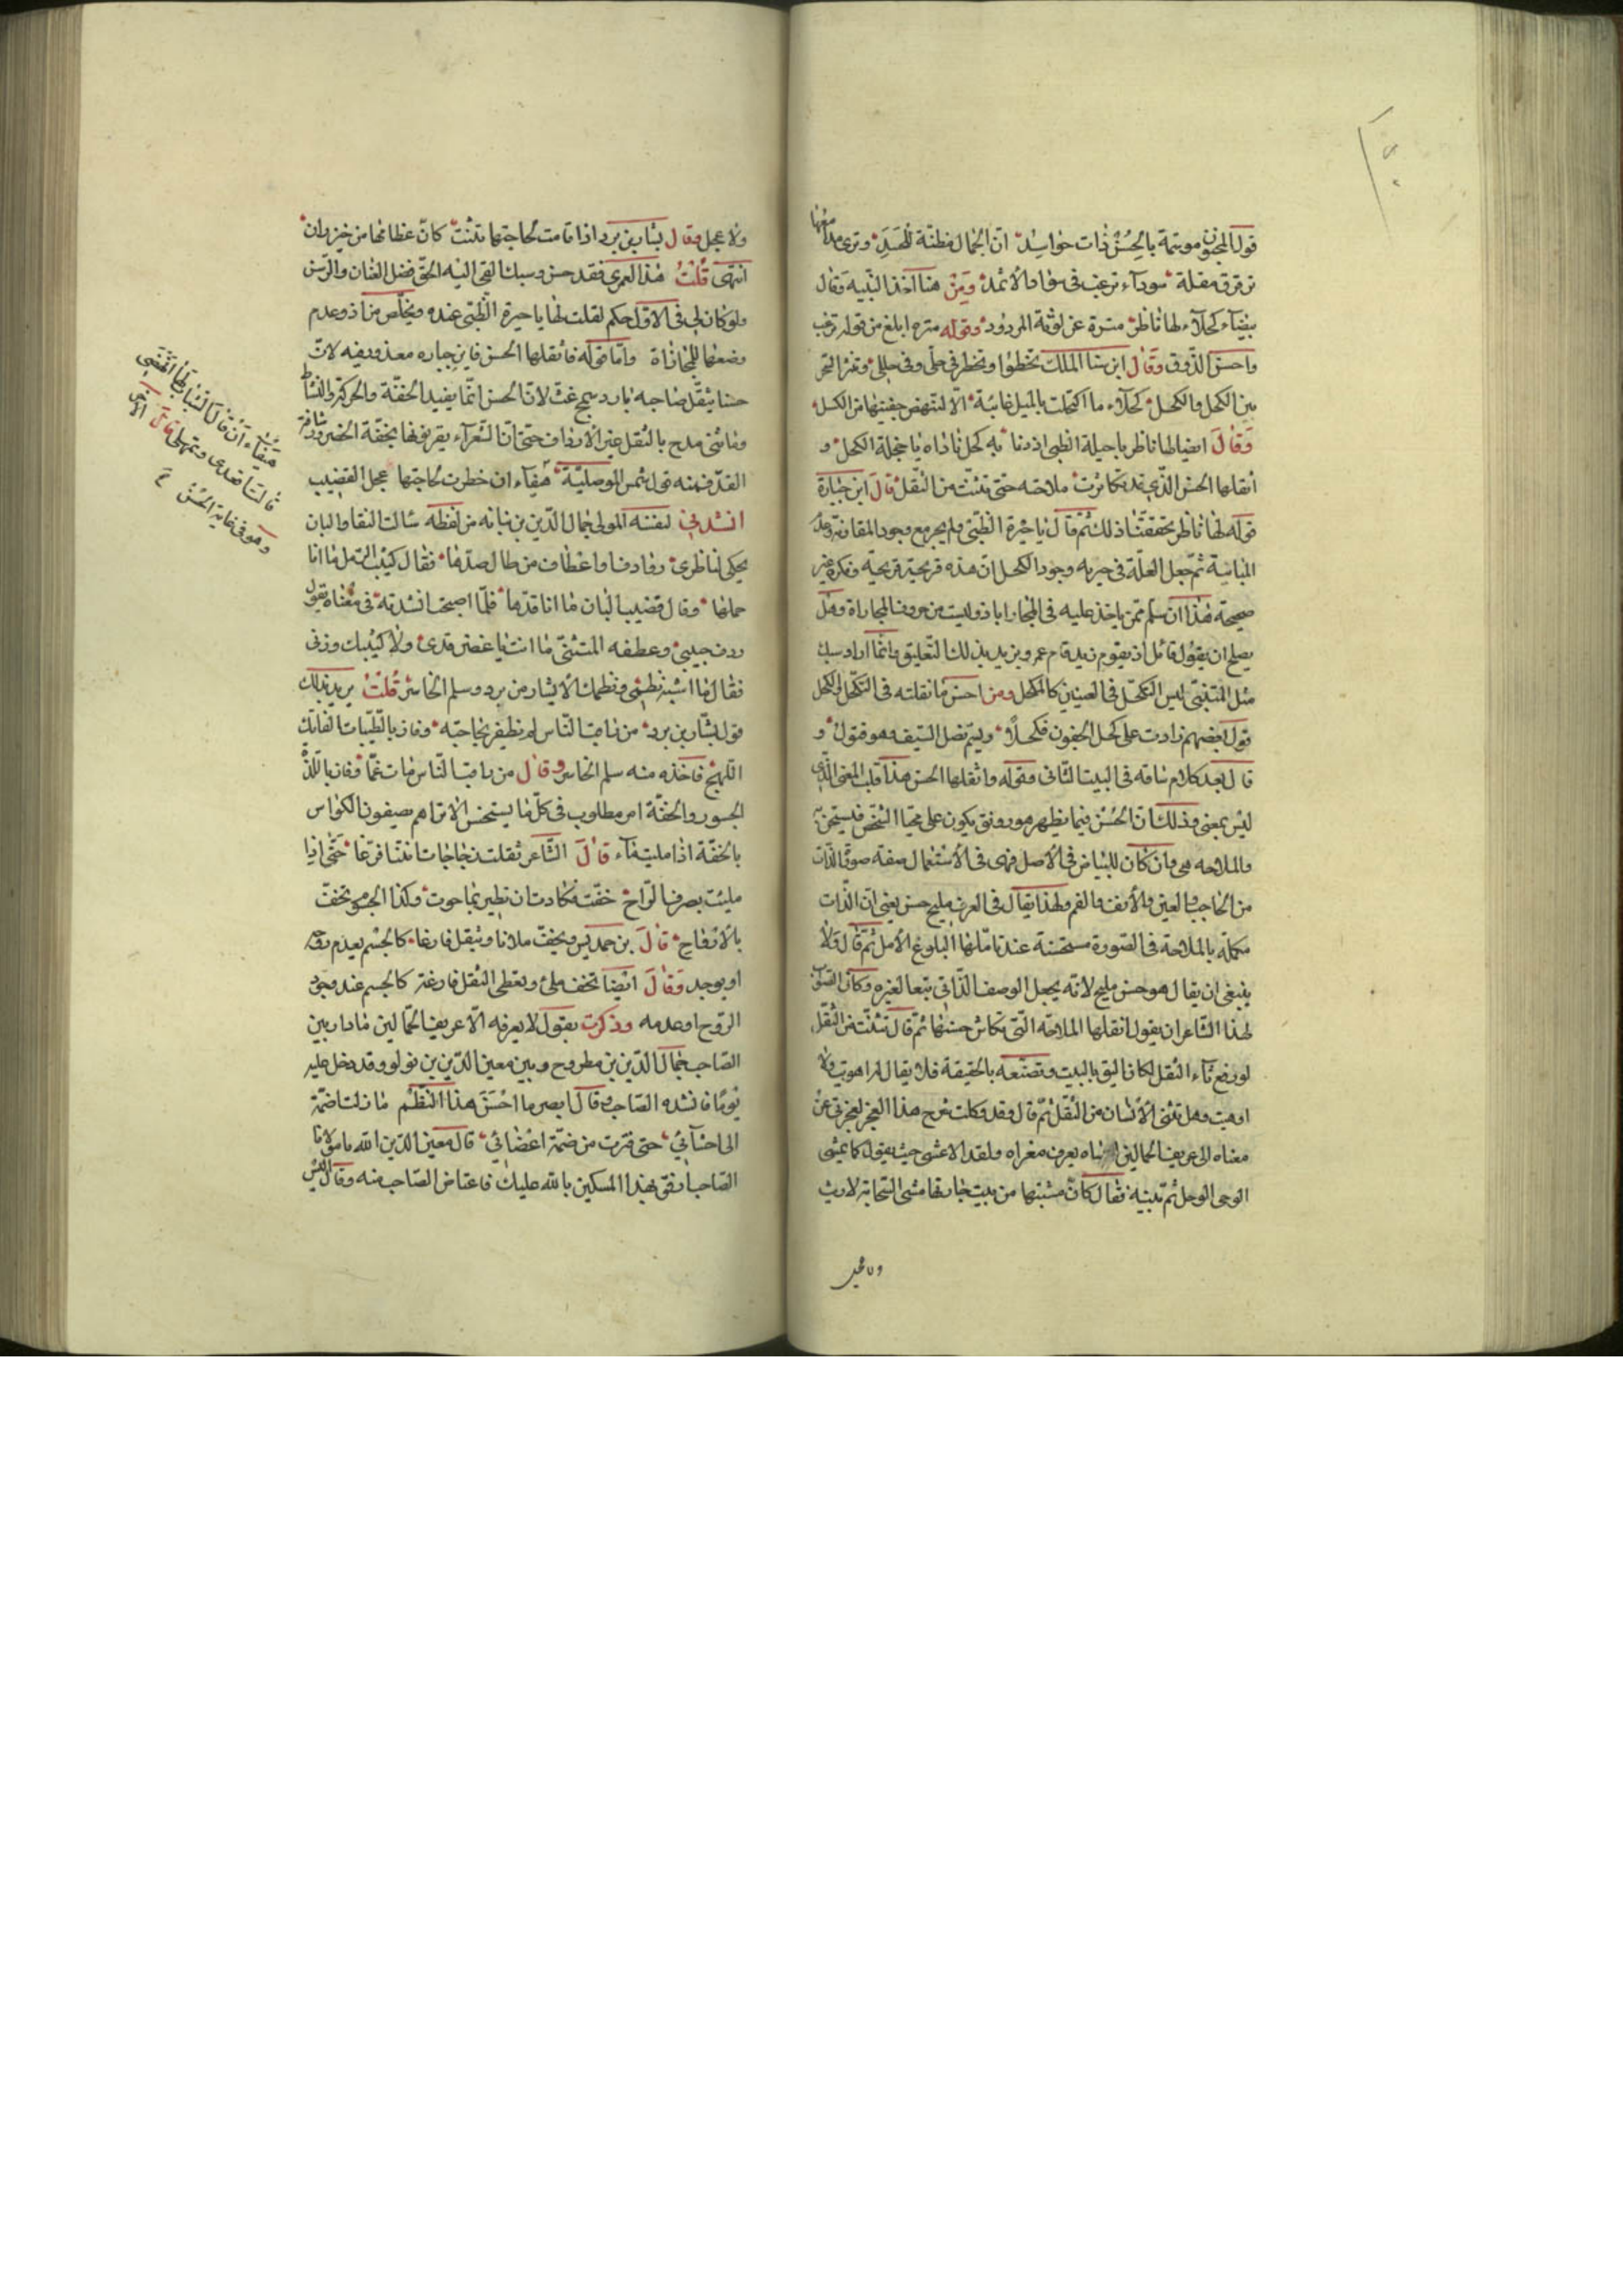 قول المجنون موسومة بالحسن ذات حواسد ان الجمال مظنة للحسد وترى مدامعها
ترقرق مقلة سوداء ترغب في سواد الاثمد ومن هنا اخذ النبيه وقال
بيضاء كحلاء لها ناظر منزه عن لوثة المرود وقوله منزه ابلغ من قوله ترغب
واحسن الذوق وقال ابن سنا الملك تخطوا وتخطر في حلى وفي حلل وتنثر السحر
بين الكحل والكحل كحلاء ما اكتحلت بالميل غانية الا لتنهض جفنيها من الكسل
وقال ايضا لها ناظر يا حيلة الظبي اذ دنا به كحل ناداه يا خجلة الكحل و
اثقلها الحسن الذي قد تكاثرت ملاحته حتى تثنت من الثقل قال ابن جبارة
قوله لها ناظر تحققنا ذلك ثم قال يا حيرة الظبي ولم يحر مع وجود المقاومة وعد
المباينة ثم جعل العلة في حيرته وجود الكحل ان هذه قريحة قريحة وفكرة غير
صحيحة هذا ان سلم ممن ياخذ عليه في المجازاة باذ وليست من حروف المجازاة وهل
يصلح ان يقول قائل اذ يقوم زيد قام عمرو يريد بذلك التعليق وانما اراد سبك
مثل المتنبي ليس التكحل في العينين كالكحل ومن احسن ما نقلته في التكحل والكحل
قول بعضهم زادت على كحل الجفون تكحلا ويسم نصل السيف وهو قتول و
قال بعد كلام ساقه في البيت الثاني وقوله واثقلها الحسن هذا قلب المعنى الذي
ليس بمعنى وذلك ان الحسن فيما يظهر هو رونق يكون على محيا الشخص فيستحسن
والملاحة هي وان كان للبياض في الاصل فهي في الاستعمال صفة صورة الذات
من الحاجب والعين والانف والفم ولهذا يقال في العرف مليح حسن يعني ان الذات
مكملة بالملاحة في الصورة مستحسنة عند تاملها البلوغ الامل ثم قال ولا
ينبغي ان يقال هو حسن مليح لانه يجعل الوصف الذاتي تبعا لغيره وكان الصواب
لهذا الشاعر ان يقول اثقلها الملاحة التي تكاثر حسنها ثم قال تثنت من الثقل
لو رفع تاء الثقل لكان اليق بالبيت وتصنعه بالحقيقة فلا يقال لم اهويت ولا
اوهيت وهل تثنى الانسان من الثقل ثم قال وقد وكلت شرح هذا العجز لعجزي عن
معناه الى عريف الحمالين فانه يعرف مغزاه ولقد الاعشى حيث يقول كما يمشي
الوجى الوحل ثم تمم بيته فقال كان مشيتها من بيت جارتها مشي السحابة لا ريث
ولا عجل
ولا عجل وقال بشار بن برد اذا قامت لحاجتها تثنت كان عظامها من خيزران
انتهى قلت هذا لعمري نقد حسن وسبك
ولو كان لي في الاول حكم لقلت لها يا حيرة الظبي عنده وتخلص من اذ وعدم
وضعها للمجازاة واما قوله فاثقلها الحسن فابن جبارة معذور فيه لان
حسنا يثقل صاحبه بارد سمج غث لان الحسن انما يفيد الخفة والحركة والنشاط
وما شئ مدح بالثقل غير الارداف حتى ان الشعراء يقرنونها بخفة الخصر ورشاقة
القد فمنه قول شمس الموصلية هيفاء ان خطرت لحاجتها عجل القضيب
هيفاء ان قال الشباب لها انهضي
قالت روادفها اقعدي وتمهلي قال الاخر
وهو في غاية الحسن
انشدني لنفسه المولى جمال الدين بن نباته من لفظه سالت النقا والبان
يحكى لناظري روادف او اعطاف من طال صدها فقال كثيب الرمل ما انا
حملها وقال قضيب البان ما انا قدها فلما اصبحت انشدته في معناه يقول
ردف حبيبي وعطفه المتثنى ما انت يا غصن قدي ولا كثيبك وزني
فقال ما اشبه نظمي ونظمك الا بشار بن برد وسلم الخاسر قلت يريد بذلك
قول بشار بن برد من راقب الناس لم يظفر بحاجته وفاز بالطيبات الفاتك
اللهج فاخذه منه سلم الخاسر وقال من راقب الناس مات غما وفاز باللذة
الجسور والخفة امر مطلوب في كل ما يستحسن الا تراهم يصفون الكواس
بالخفة اذا مليت ماء قال الشاعر ثقلت زجاجات اتتنا فرغا حتى اذا
مليئت بصرف الراح خفت فكادت ان تطير بما حوت وكذا الجسوم تخف
بالارواح قال بن حمديس ويخف ملانا ويثقل فارغا كالجسم يعدم روحه
او يوجد وقال ايضا تخف ملئ وتعطى الثقل فارغة كالجسم عند وجود
الروح او عدمه وذكرت بقوله لا يعرفه الا عريف الحمالين ما دار بين
الصاحب جمال الدين بن مطروح وبين معين الدين بن لولو وقد دخل عليه
يوما فانشده الصاحب وقال ابصر ما احسن هذا النظم ما زلت اضمه
الى احشائي حتى فترت من ضمه اعضائي قال معين الدين الله يا مولانا
الصاحب ارفق بهذا المسكين بالله عليك فاغتاض الصاحب منه وقال ايش